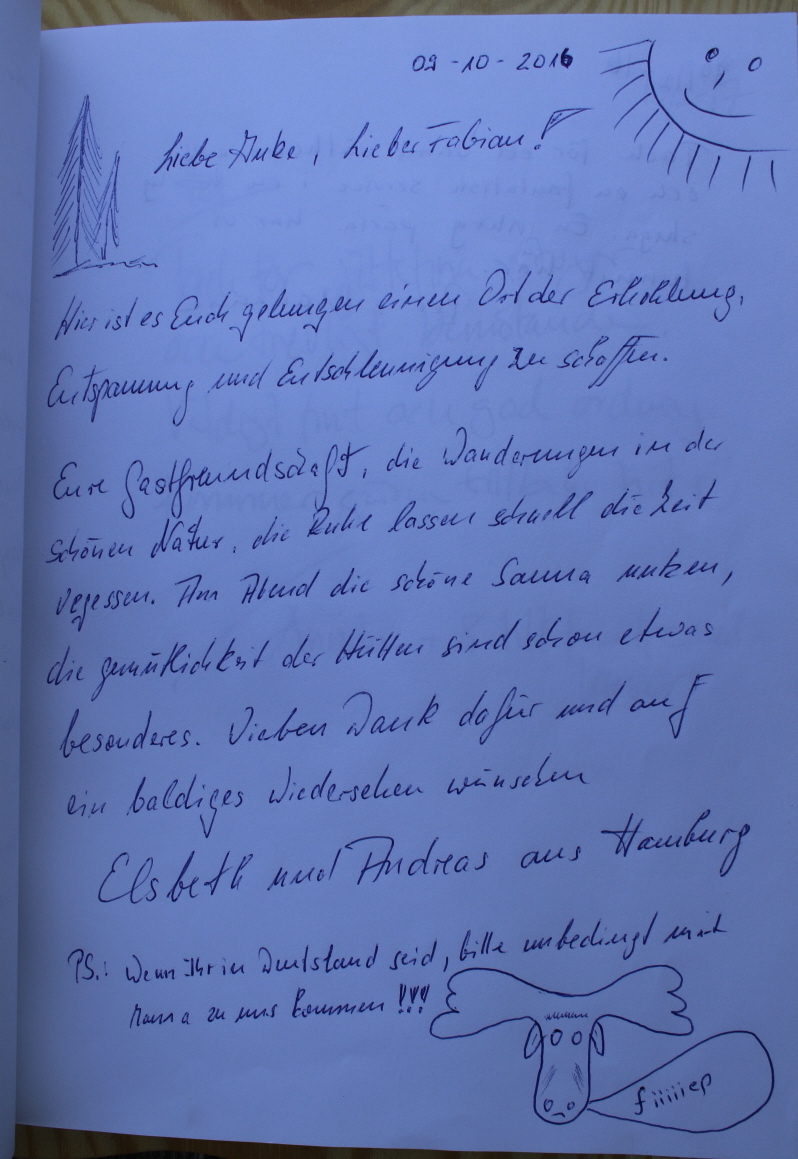 09-10-2016
Liebe Anke, Lieber Fabian!
Hier ist es Euch gelungen einen Ort der Erhohlung,
Entspannung und Entschleunigung zu schaffen.
Eure Gastfreundschaft, die Wanderungen in der
schönen Natur, die Ruhe lassen schnell die Zeit
vegessen. Am Abend die schöne Sauna nutzen,
die gemütlichkeit der Hütten sind schon etwas
besonderes. Vielen Dank dafür und auf
ein baldiges Wiedersehen wünschen
Elsbeth und Andreas aus Hamburg
PS.: Wenn Ihr in Deutstand seid, bitte unbedingt mit
zu uns kommen!!!
fiiiiiep